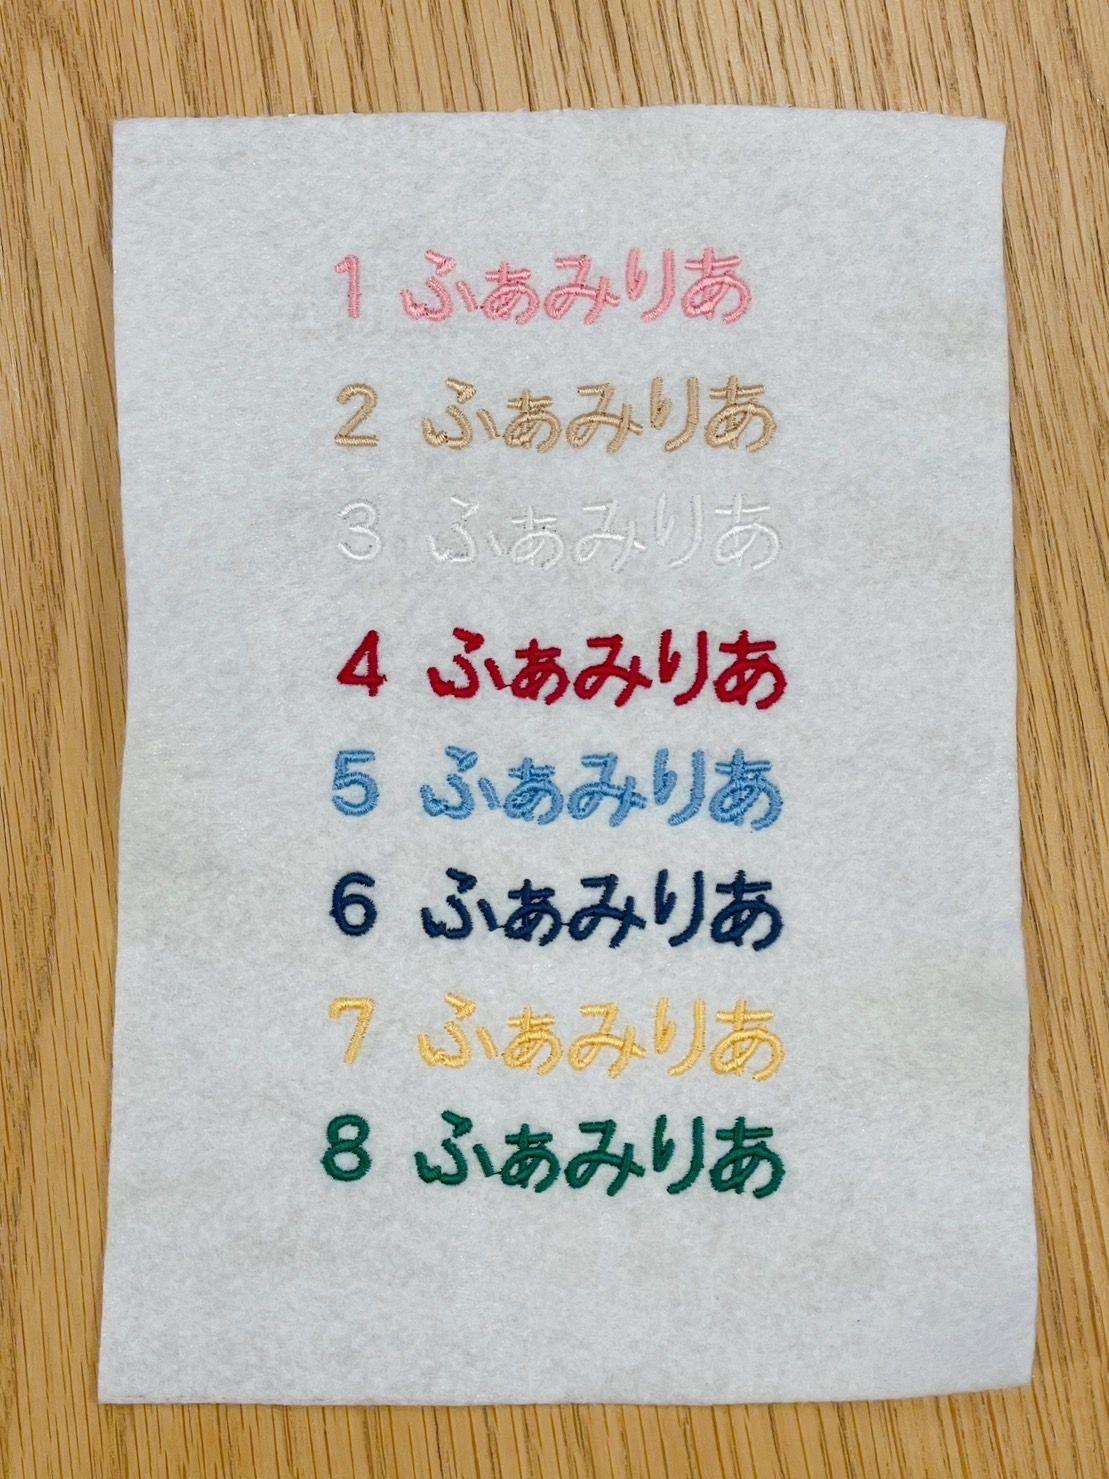 1 ふぁみりあ
2 ふぁみりあ
3 ふぁみりあ
4 ふぁみりあ
5 ふぁみりあ
6 ふぁみりあ
7 ふぁみりあ
8 ふぁみりあ